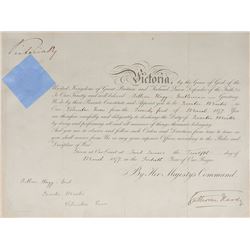 Victoria R
Victoria, by the Grace of God of the
United Kingdom of Great Britain and Ireland Queen, Defender of the Faith &c.
To Our Trusty and well beloved William Hogg Greeting
We do by these Presents Constitute and Appoint you to be Quarter Master
in Our from the day of March 1877. You
are therefore carefully and diligently to discharge the Duty of Quarter Master
by doing and performing all and all manner of things thereunto belonging
And you are to observe and follow such Orders and Directions from time to time as
you shall receive from Us or any your superior Officer according to the Rules and
Discipline of War
Given at Our Court at Saint James's the day of
March 1877 in the Fortieth Year of Our Reign
By Her Majesty's Command
Gathorne Hardy
William Hogg
Quarter Master